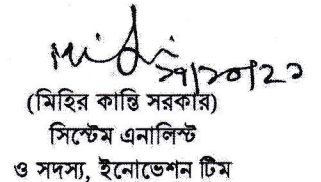 ২৭/১০/২১
(মিহির কান্তি সরকার)
সিস্টেম এনালিস্ট
ও সদস্য, ইনোভেশন টিম